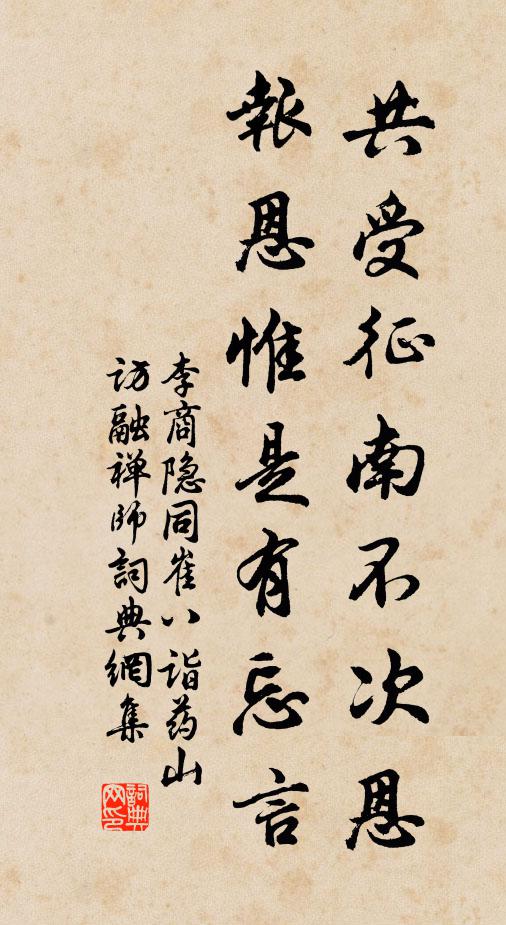 共受征南不次恩
報恩惟是有忘言
李商隐同崔八詣药山
访融禅师詞典網集
詞典
网印